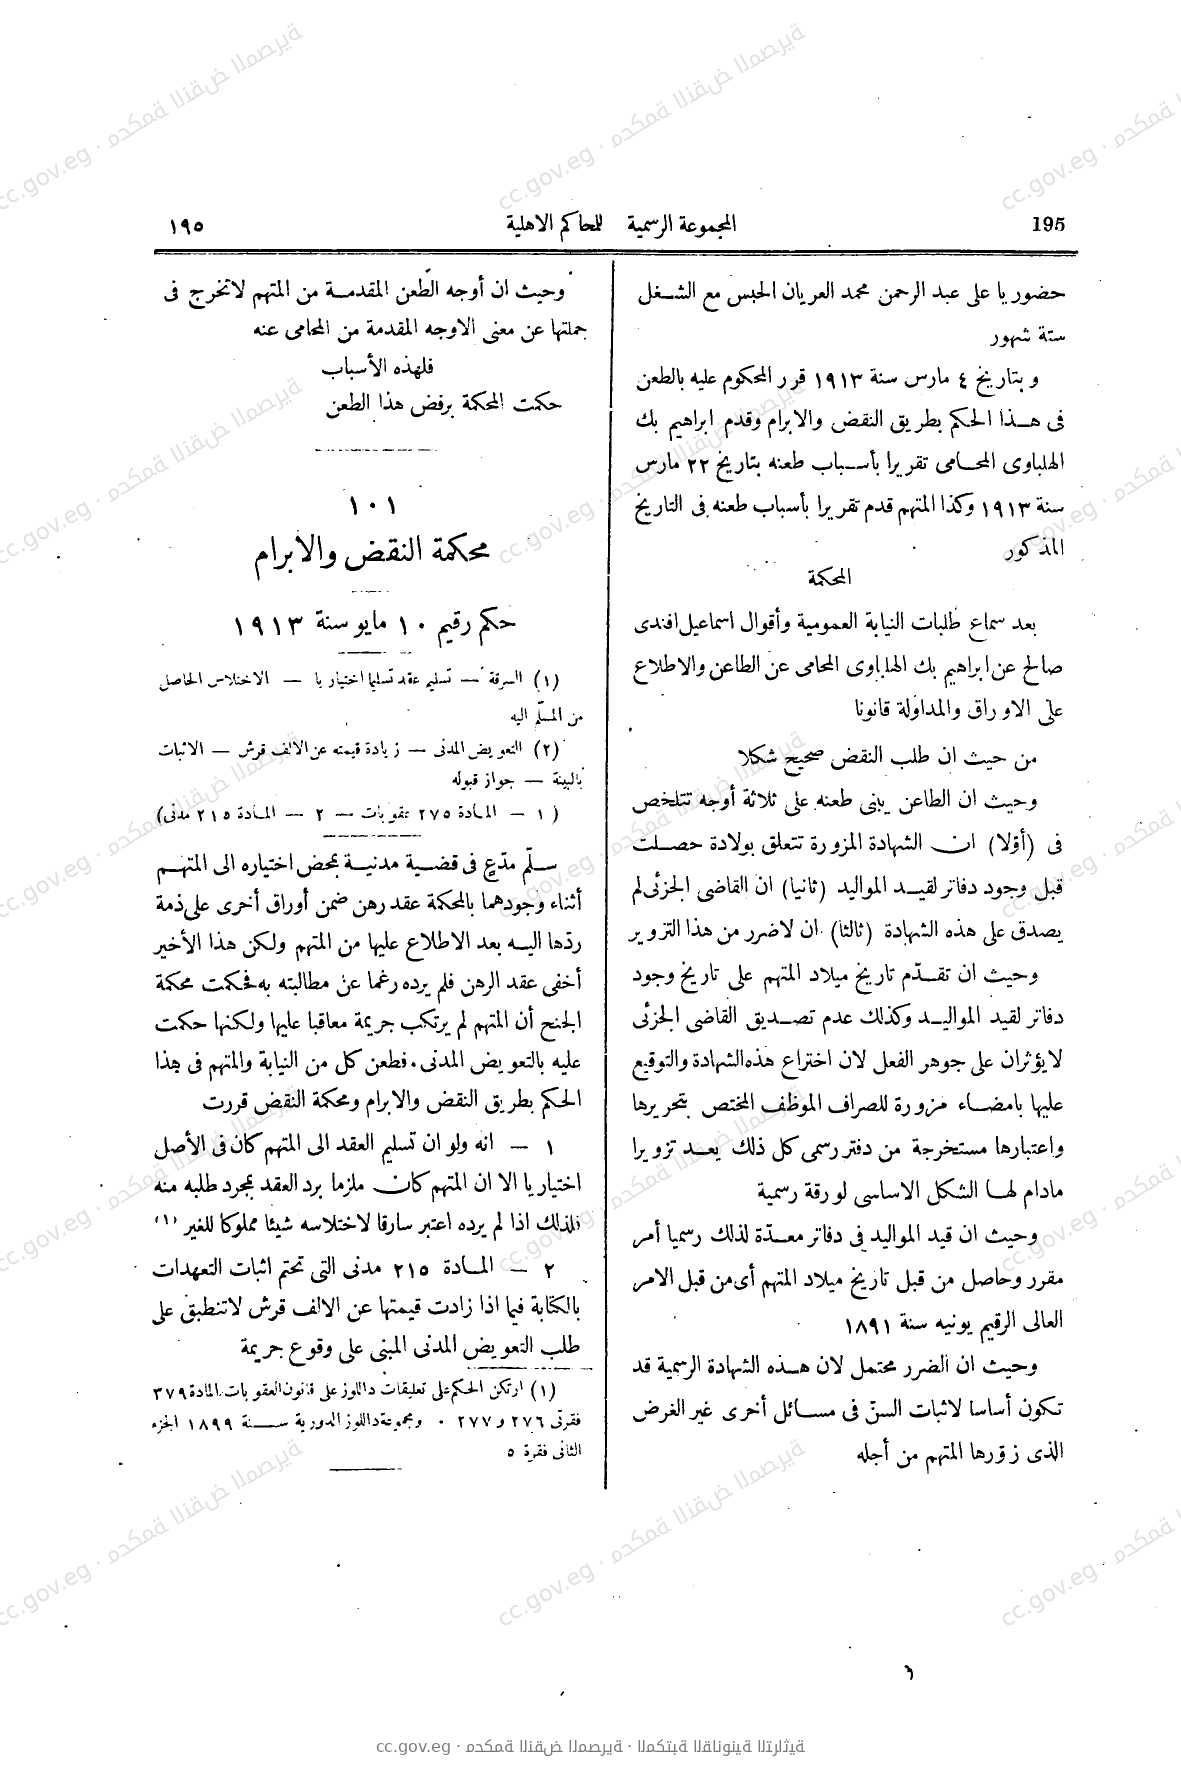 195
المجموعة الرسمية للمحاكم الاهلية
١٩٥
حضوريا على عبد الرحمن محمد العريان الحبس مع الشغل
ستة شهور
وبتاريخ ٤ مارس سنة ١٩١٣ قرر المحكوم عليه بالطعن
فى هذا الحكم بطريق النقض والابرام وقدم ابراهيم بك
الهلباوى المحامى تقريرا بأسباب طعنه بتاريخ ٢٢ مارس
سنة ١٩١٣ وكذا المتهم قدم تقريرا بأسباب طعنه فى التاريخ
المذكور
المحكمة
بعد سماع طلبات النيابة العمومية وأقوال اسماعيل افندى
صالح عن ابراهيم بك الهلباوى المحامى عن الطاعن والاطلاع
على الاوراق والمداولة قانونا
من حيث ان طلب النقض صحيح شكلا
وحيث ان الطاعن يبنى طعنه على ثلاثة أوجه تتلخص
فى (أوّلا) ان الشهادة المزورة تتعلق بولادة حصلت
قبل وجود دفاتر لقيد المواليد (ثانيا) ان القاضى الجزئى لم
يصدق على هذه الشهادة (ثالثا) ان لاضرر من هذا التزوير
وحيث ان تقدّم تاريخ ميلاد المتهم على تاريخ وجود
دفاتر لقيد المواليد وكذلك عدم تصديق القاضى الجزئى
لايؤثران على جوهر الفعل لان اختراع هذه الشهادة والتوقيع
عليها بامضاء مزورة للصراف الموظف المختص بتحريرها
واعتبارها مستخرجة من دفتر رسمى كل ذلك يعد تزويرا
مادام لها الشكل الاساسى لورقة رسمية
وحيث ان قيد المواليد فى دفاتر معدّة لذلك رسميا أمر
مقرر وحاصل من قبل تاريخ ميلاد المتهم أى من قبل الامر
العالى الرقيم يونيه سنة ١٨٩١
وحيث ان الضرر محتمل لان هذه الشهادة الرسمية قد
تكون أساسا لاثبات السنّ فى مسائل أخرى غير الغرض
الذى زوّرها المتهم من أجله
وحيث ان أوجه الطعن المقدمة من المتهم لاتخرج فى
جملتها عن معنى الاوجه المقدمة من المحامى عنه
فلهذه الأسباب
حكمت المحكمة برفض هذا الطعن
١٠١
محكمة النقض والابرام
حكم رقيم ١٠ مايو سنة ١٩١٣
(١) السرقة — تسليم عقد تسليما اختياريا — الاختلاس الحاصل
من المسلّم اليه
(٢) التعويض المدنى — زيادة قيمته عن الالف قرش — الاثبات
بالبينة — جواز قبوله
(١ — المادة ٢٧٥ عقوبات — ٢ — المادة ٢١٥ مدنى)
سلّم مدّعٍ فى قضية مدنية بمحض اختياره الى المتهم
أثناء وجودهما بالمحكمة عقد رهن ضمن أوراق أخرى على ذمة
ردّها اليه بعد الاطلاع عليها من المتهم ولكن هذا الأخير
أخفى عقد الرهن فلم يرده رغما عن مطالبته به فحكمت محكمة
الجنح أن المتهم لم يرتكب جريمة معاقبا عليها ولكنها حكمت
عليه بالتعويض المدنى. فطعن كل من النيابة والمتهم فى هذا
الحكم بطريق النقض والابرام ومحكمة النقض قررت
١ — انه ولو ان تسليم العقد الى المتهم كان فى الأصل
اختياريا الا ان المتهم كان ملزما برد العقد بمجرد طلبه منه
فلذلك اذا لم يرده اعتبر سارقا لاختلاسه شيئا مملوكا للغير (١)
٢ — المادة ٢١٥ مدنى التى تحتم اثبات التعهدات
بالكتابة فيما اذا زادت قيمتها عن الالف قرش لاتنطبق على
طلب التعويض المدنى المبنى على وقوع جريمة
(١) ارتكن الحكم على تعليقات داللوز على قانون العقوبات المادة ٣٧٩
فقرتى ٢٧٦ و ٢٧٧ . ومجموعة داللوز الدورية سنة ١٨٩٩ الجزء
الثانى فقرة ٥
٦
cc.gov.eg · محكمة النقض المصرية · المكتبة القانونية التراثية